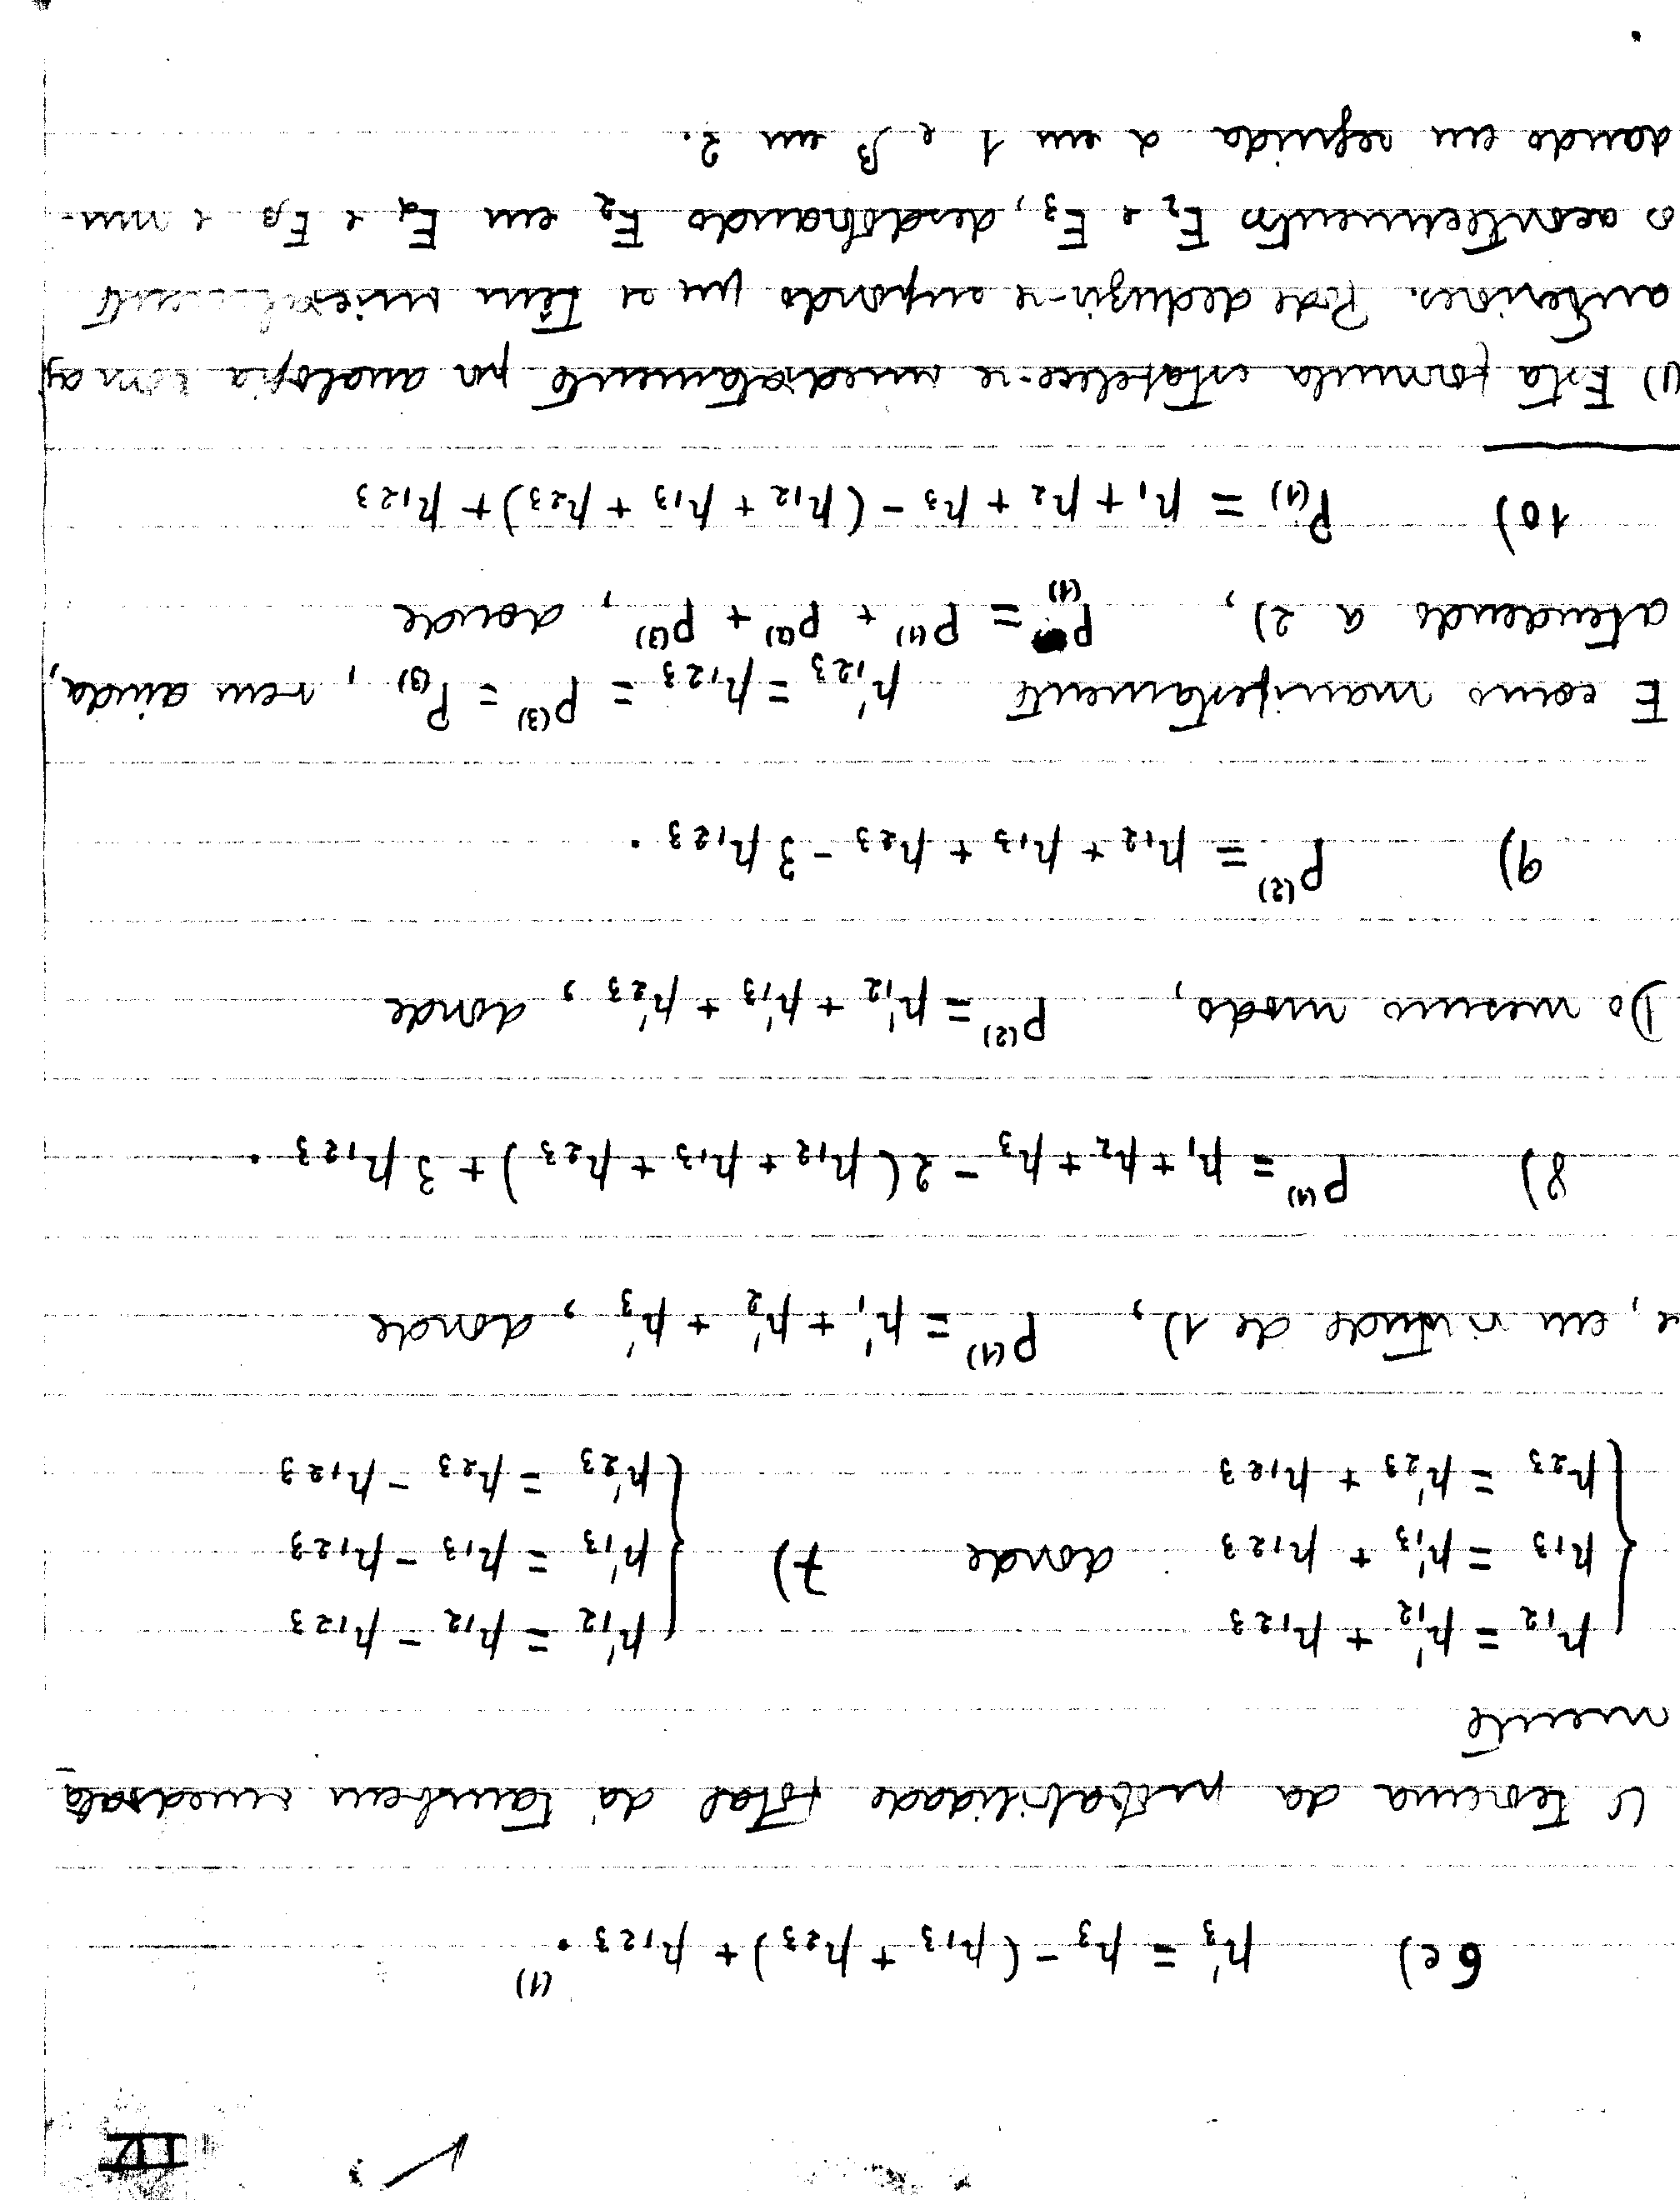 VII
6c) p'₃ = p₃ - (p₁₃ + p₂₃) + p₁₂₃ . (1)
O teorema da probabilidade total dá tambem imediata-
mente
p₁₂ = p'₁₂ + p₁₂₃ p'₁₂ = p₁₂ - p₁₂₃
p₁₃ = p'₁₃ + p₁₂₃ donde 7) p'₁₃ = p₁₃ - p₁₂₃
p₂₃ = p'₂₃ + p₁₂₃ p'₂₃ = p₂₃ - p₁₂₃
e, em virtude de 1), P⁽¹⁾ = p'₁ + p'₂ + p'₃ , donde
8) P⁽¹⁾ = p₁ + p₂ + p₃ - 2 (p₁₂ + p₁₃ + p₂₃) + 3 p₁₂₃ .
Do mesmo modo, P⁽²⁾ = p'₁₂ + p'₁₃ + p'₂₃ , donde
9) P⁽²⁾ = p₁₂ + p₁₃ + p₂₃ - 3 p₁₂₃ .
E como manifestamente p'₁₂₃ = p₁₂₃ = P⁽³⁾ = P₍₃₎ , vem ainda,
atendendo a 2), P₍₁₎ = P⁽¹⁾ + P⁽²⁾ + P⁽³⁾ , donde
10) P₍₁₎ = p₁ + p₂ + p₃ - (p₁₂ + p₁₃ + p₂₃) + p₁₂₃
(1) Esta formula estabelece-se imediatamente por analogia com as
anteriores. Pode deduzir-se supondo que se têm inicialmente
o acontecimento E₂ e E₃, desdobrando E₂ em Eα e Eβ e mu-
dando em seguida α em 1 e β em 2.